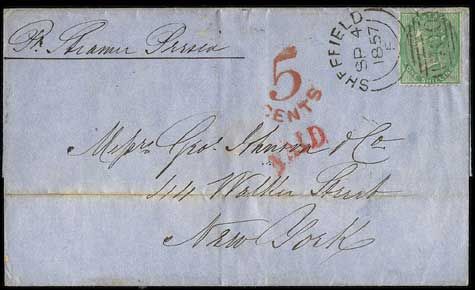 Pr. Steamer Persia
SHEFFIELD
SP 4
1857
E
5
CENTS
PAID
Messrs Geo. Johnson & Co.
44 Walker Street
New York